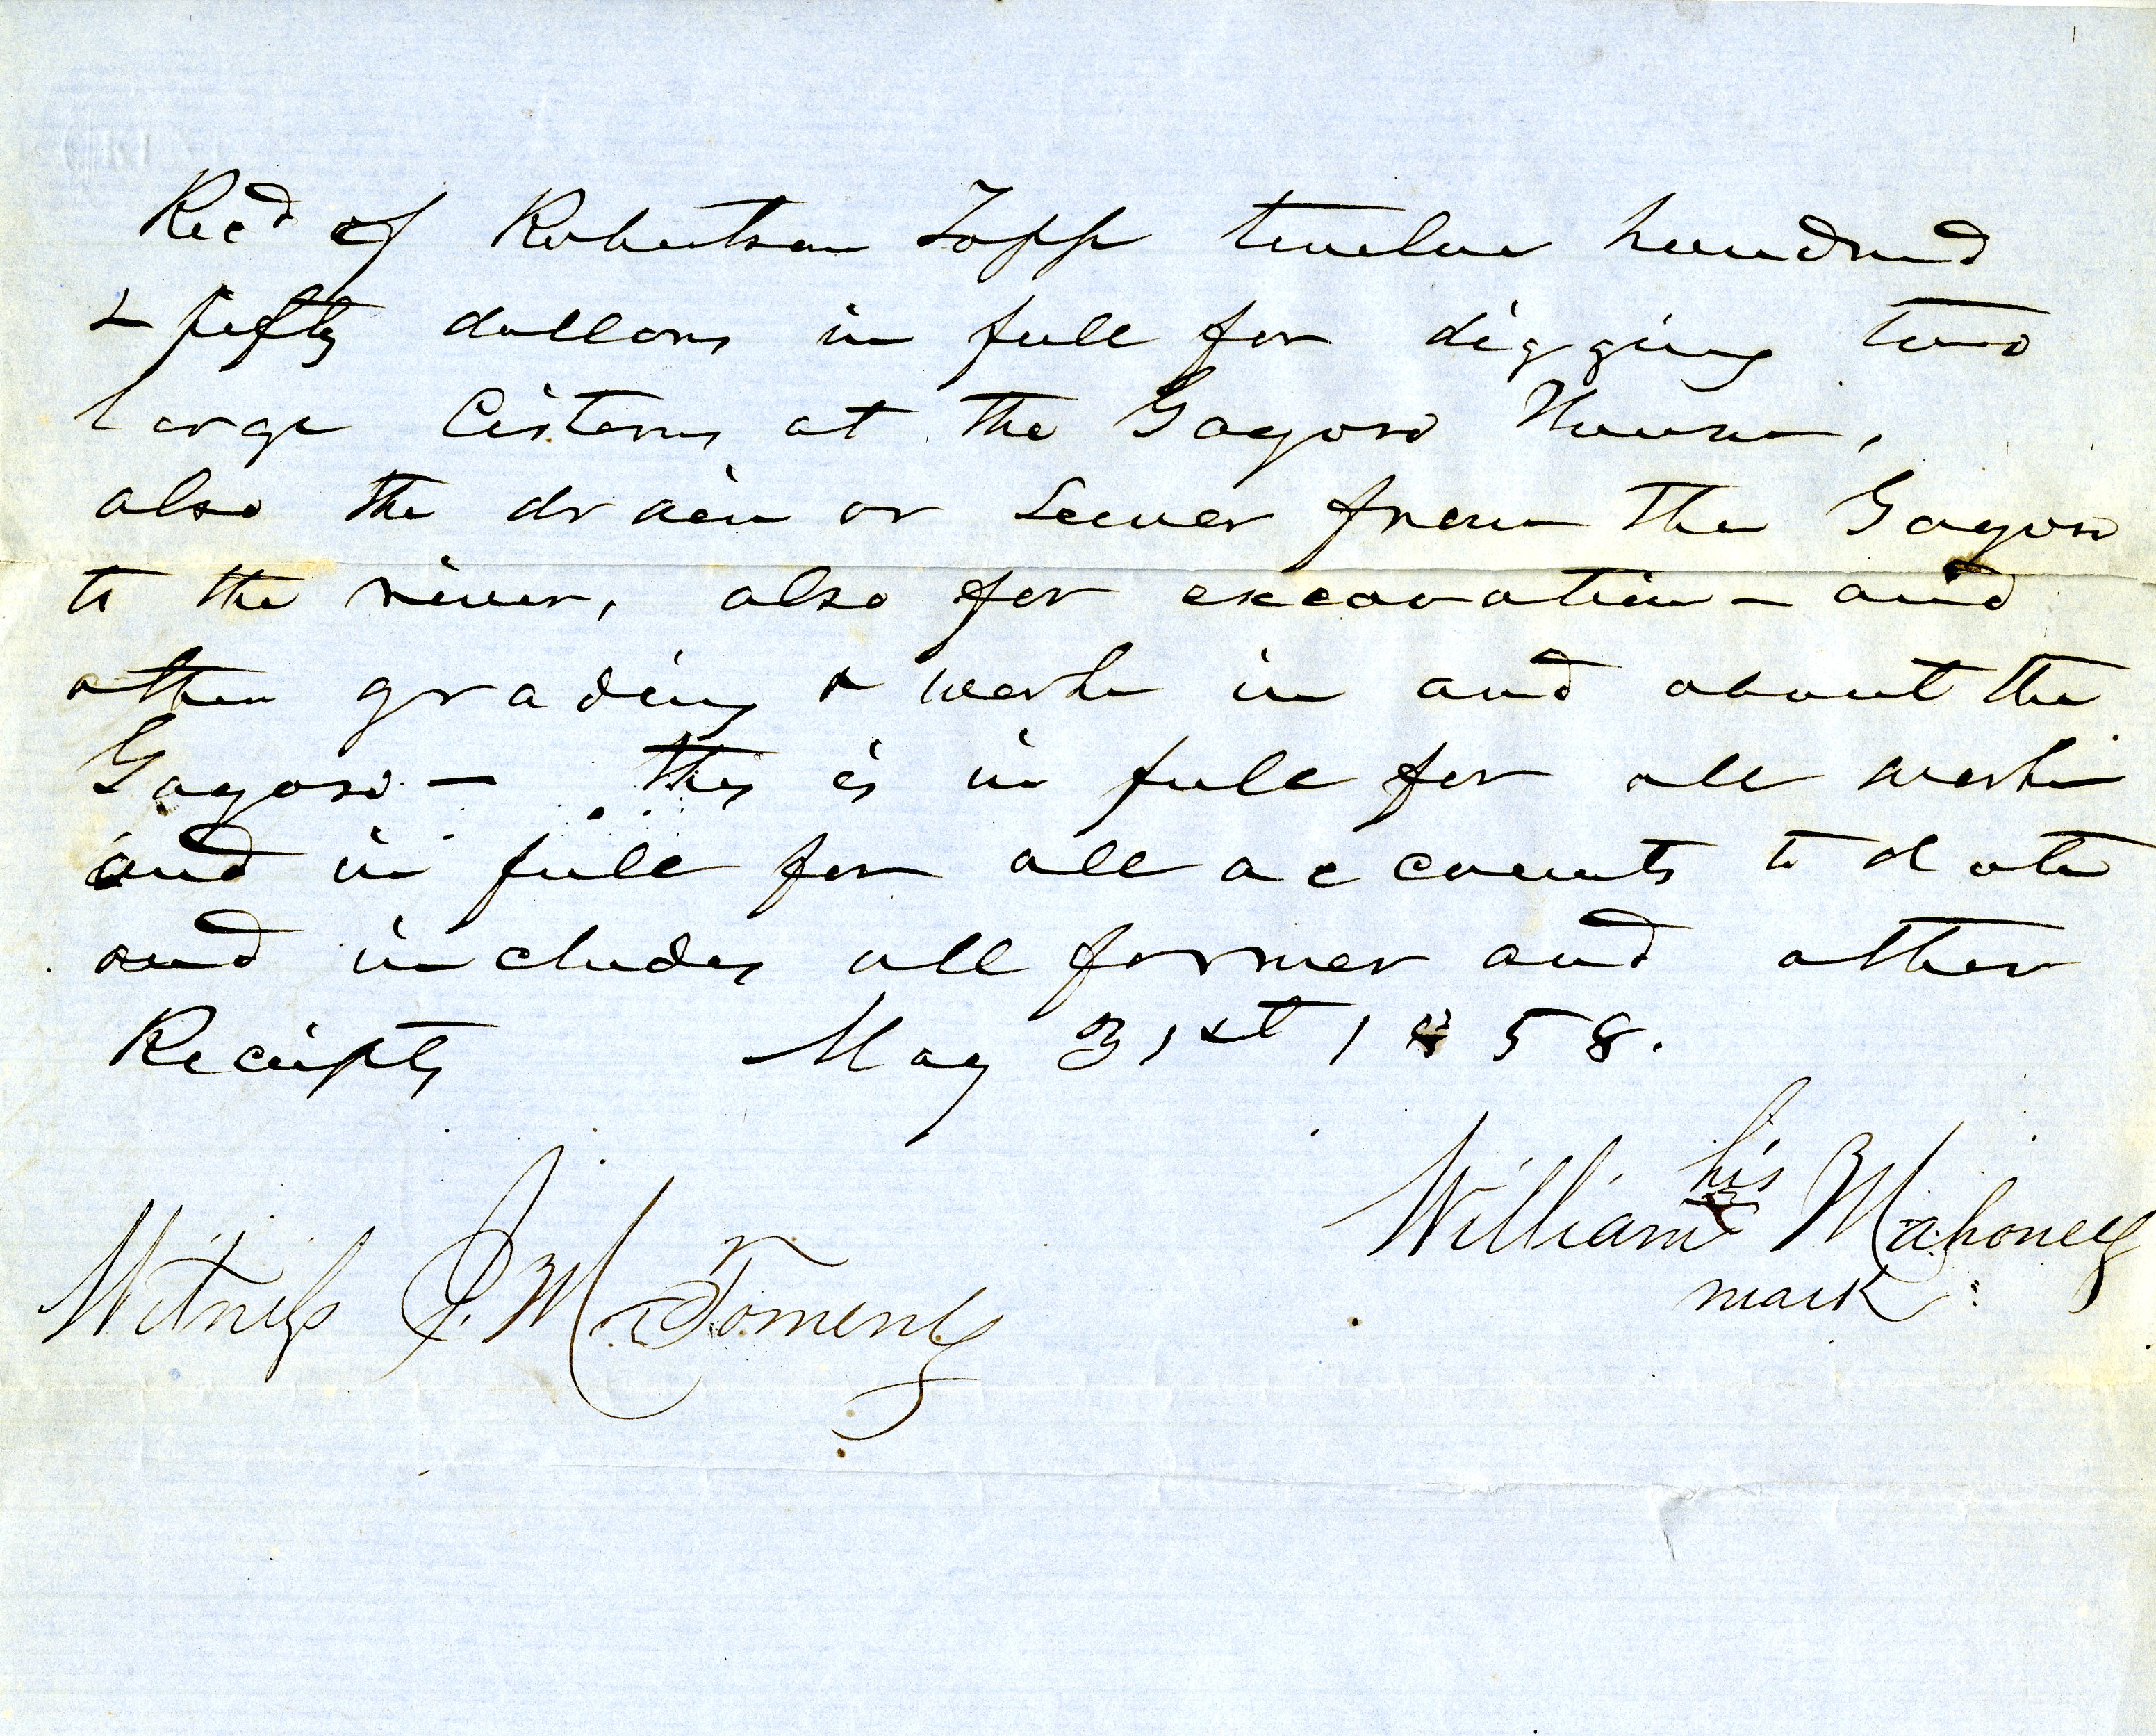 Recd of Robertson Topp twelve hundred
& fifty dollars in full for digging two
large Cisterns at the Gayoso House,
also the drain or Sewer from the Gayoso
to the river, also for excavation - and
other grading & work in and about the
Gayoso - this is in full for all work
and in full for all accounts to date
and includes all former and other
Receipts May 31st 1858.
his
William Mahoney
mark
Witness J. M.